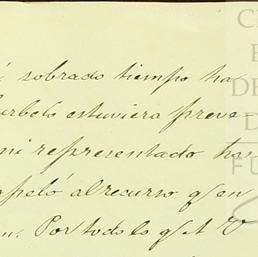 sobrado tiempo ha
estuviera preve-
mi representado has
apeló al recurso q/ en
Por todo lo q/ A V